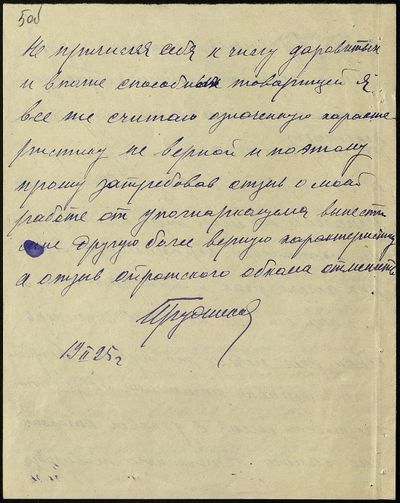 50об
Не причисляя себя к числу даровитых
и вполне способных товарищей я
все же считаю означенную характе-
ристику не верной и поэтому
прошу затребовав отзыв о моей
работе от упогнаркацума вынести
мне другую более верную характеристику
а отзыв
обкома отменить
13 II 25 г